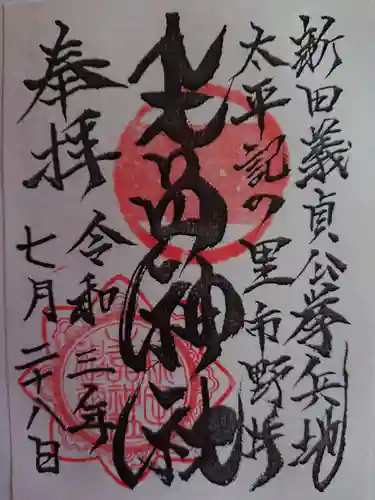 新田義貞公挙兵地
太平記の里市野井
生品神社
奉拝
令和三年
七月二十八日